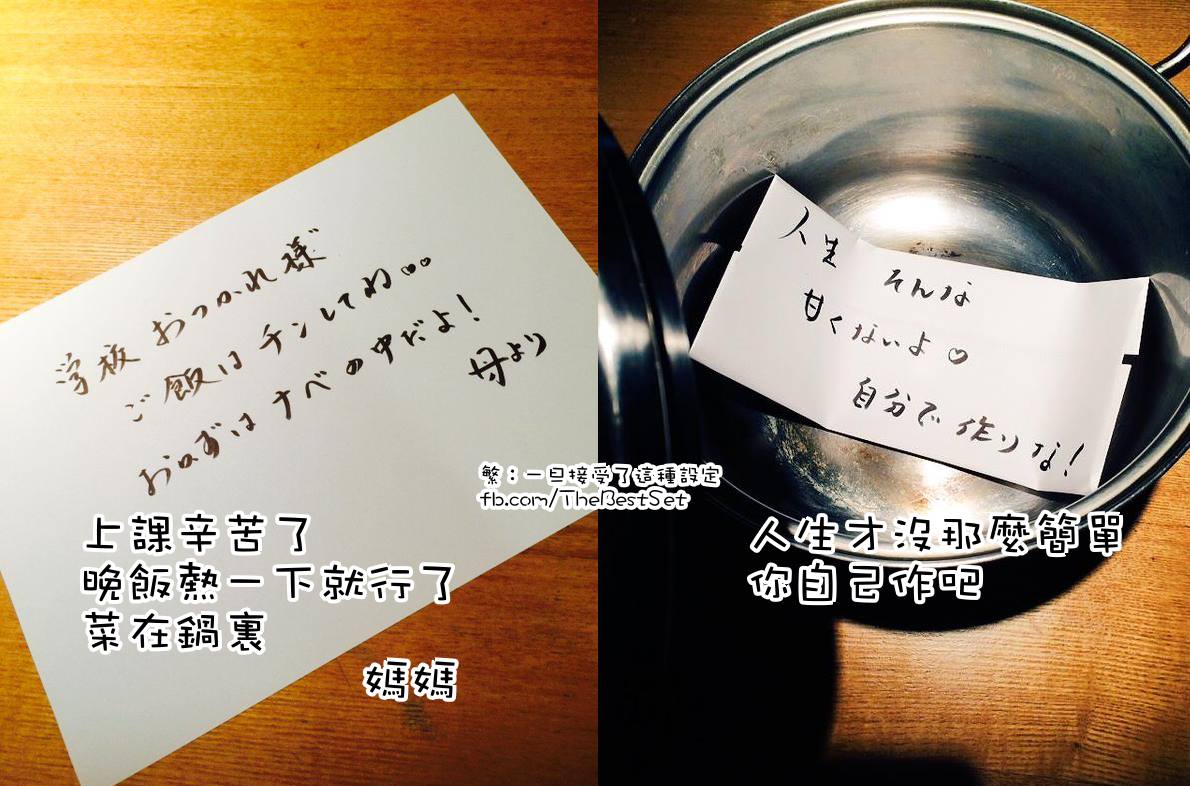 学校 おつかれ様
ご飯は チンしてね♡♡
おかずは ナベの中だよ!
母より
上課辛苦了
晚飯熱一下就行了
菜在鍋裏
媽媽
繁:一旦接受了這種設定
fb.com/TheBestSet
人生 そんな
甘くないよ♡
自分で作りな!
人生才沒那麼簡單
你自己作吧